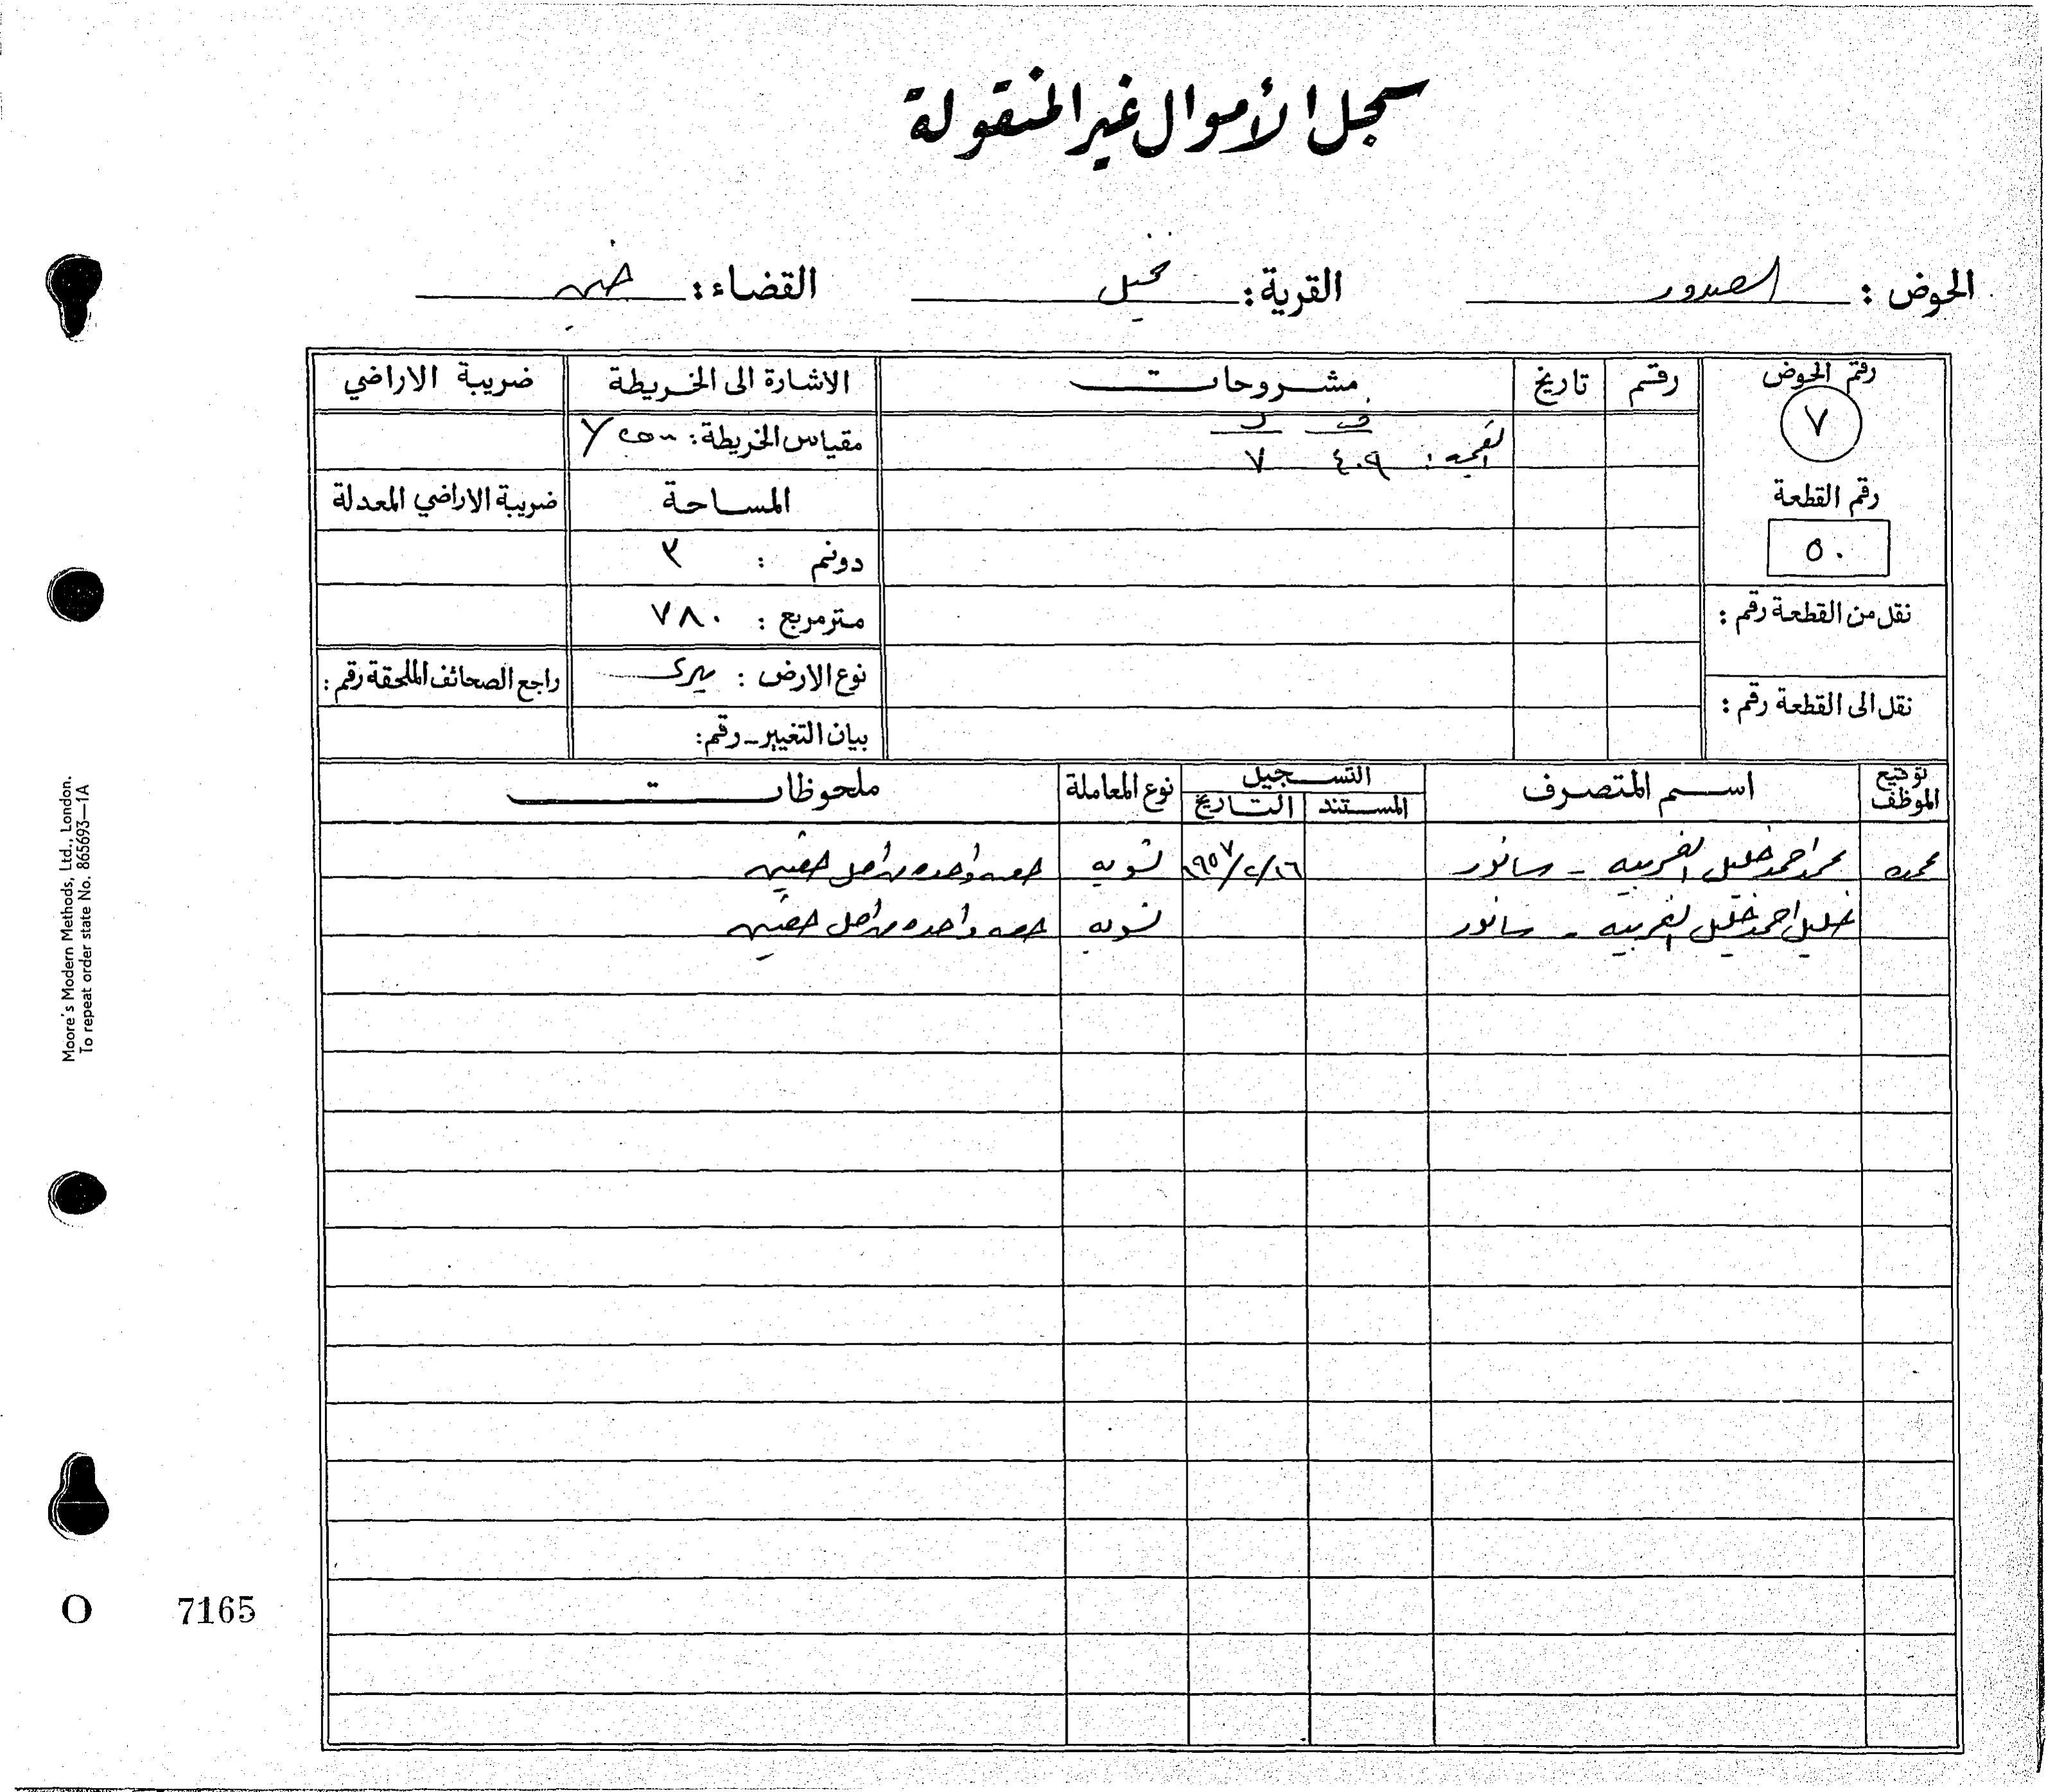 سجل الأموال غير المنقولة
الحوض : الصدور القرية : نخيل القضاء : جنين
رقم الحوض رقم تاريخ مشروحات الاشارة الى الخريطة ضريبة الاراضي
٧
ف د
القيمه : ٤٠٩ ٧
مقياس الخريطة :
رقم القطعة المساحة ضريبة الاراضي المعدلة
٥٠
دونم : ٣
نقل من القطعة رقم : متر مربع : ٧٨٠
نوع الارض : ميري راجع الصحائف الملحقة رقم :
نقل الى القطعة رقم : بيان التغيير - رقم :
توقيع الموظف اسم المتصرف التسجيل نوع المعاملة ملحوظات
المستند التاريخ
محمد احمد خليل الغربيه - سانور ١٦/٢/١٩٥٧ تسويه حصه واحده من اصل حصتين
خليل احمد خليل الغربيه - سانور تسويه حصه واحده من اصل حصتين
Moore's Modern Methods, Ltd., London.
To repeat order state No. 865693—1A
O 7165